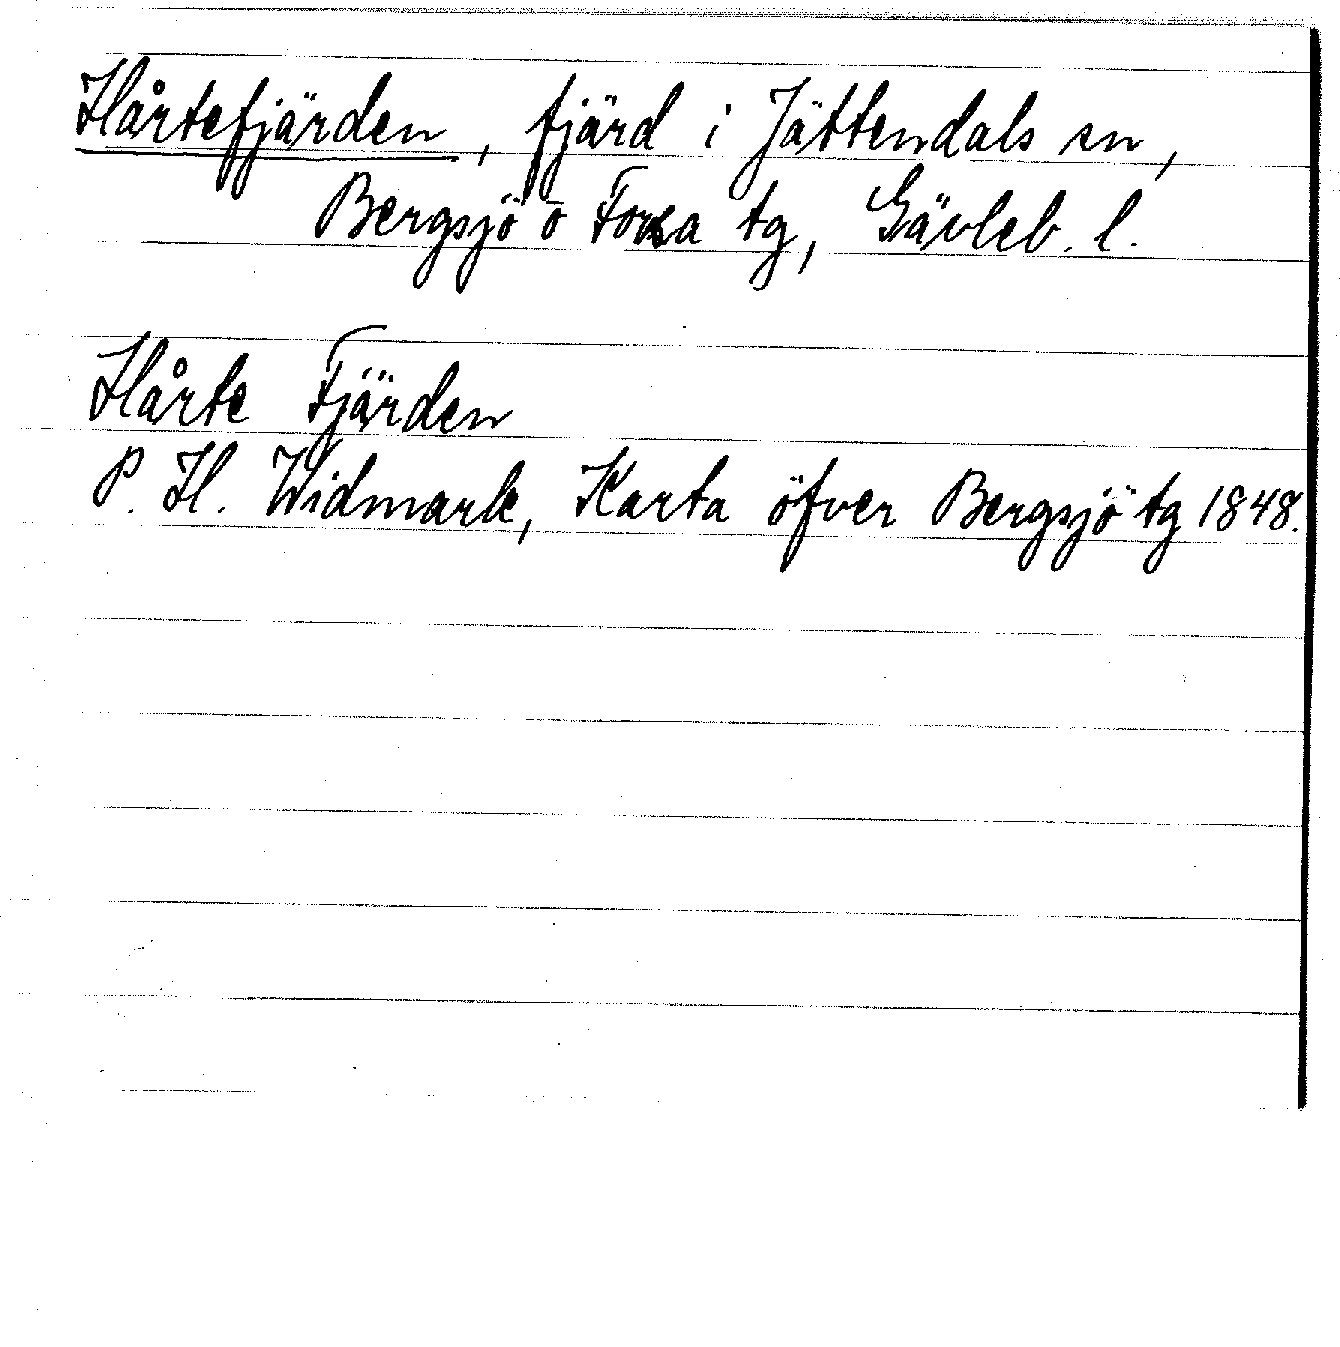 Hårtefjärden, fjärd i Jättendals sn,
Bergsjö o Forsa tg, Gävleb. l.
Hårte Fjärden
P. H. Widmark, Karta öfver Bergsjö tg 1848.